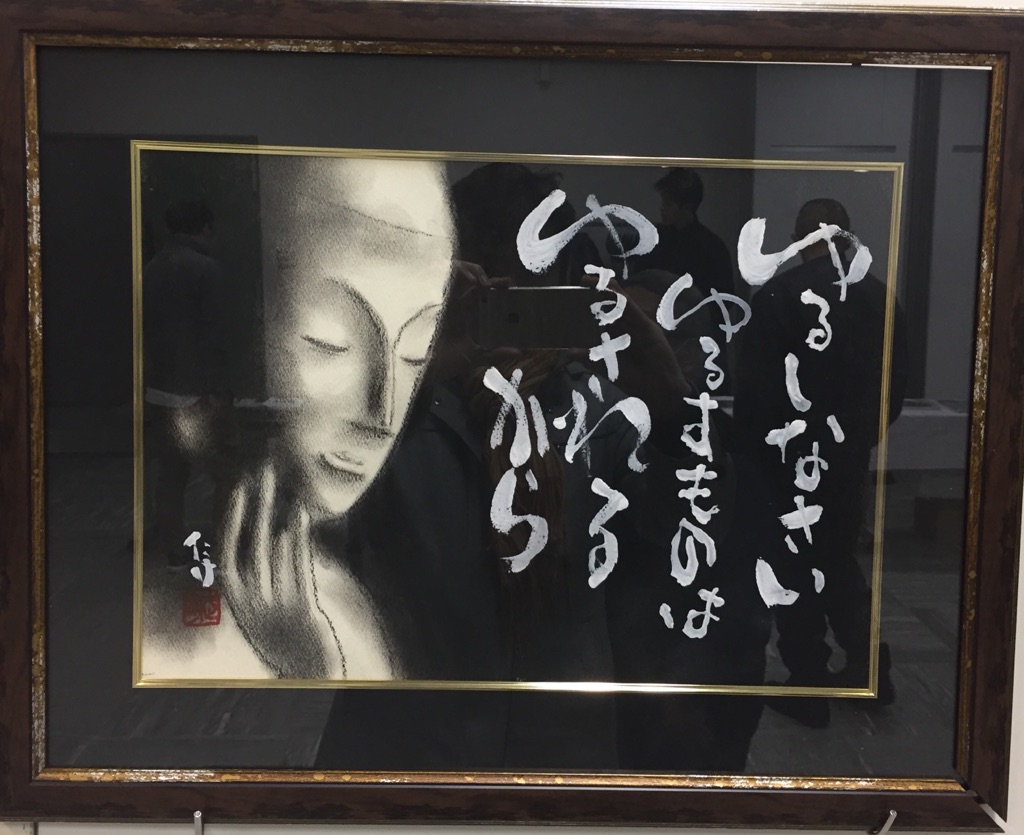 ゆるしなさい
ゆるすものは
ゆるされる
から